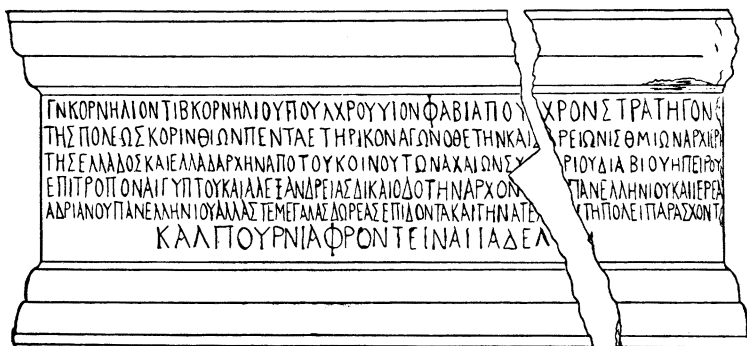 ΓΝΚΟΡΝΗΛΙΟΝΤΙΒΚΟΡΝΗΛΙΟΥΠΟΥΛΧΡΟΥΥΙΟΝΦΑΒΙΑΠΟΥ ΧΡΟΝΣΤΡΑΤΗΓΟΝ
ΤΗΣΠΟΛΕΩΣΚΟΡΙΝΘΙΩΝΠΕΝΤΑΕΤΗΡΙΚΟΝΑΓΩΝΟΘΕΤΗΝΚΑΙ ΡΕΙΩΝΙΣΘΜΙΩΝΑΡΧΙΕΡ
ΤΗΣΕΛΛΑΔΟΣΚΑΙΕΛΛΑΔΑΡΧΗΝΑΠΟΤΟΥΚΟΙΝΟΥΤΩΝΑΧΑΙΩΝΣ ΡΙΟΥΔΙΑΒΙΟΥΗΠΕΙΡΟΥ
ΕΠΙΤΡΟΠΟΝΑΙΓΥΠΤΟΥΚΑΙΑΛΕΞΑΝΔΡΕΙΑΣΔΙΚΑΙΟΔΟΤΗΝΑΡΧΟΝ ΠΑΝΕΛΛΗΝΙΟΥΚΑΙΙΕΡΕΑ
ΑΔΡΙΑΝΟΥΠΑΝΕΛΛΗΝΙΟΥΑΛΛΑΣΤΕΜΕΓΑΛΑΣΔΩΡΕΑΣΕΠΙΔΟΝΤΑΚΑΙΤΗΝΑΤΕ ΤΗΠΟΛΕΙΠΑΡΑΣΧΟΝΤΑ
ΚΑΛΠΟΥΡΝΙΑΦΡΟΝΤΕΙΝΑΗΑΔΕΛ